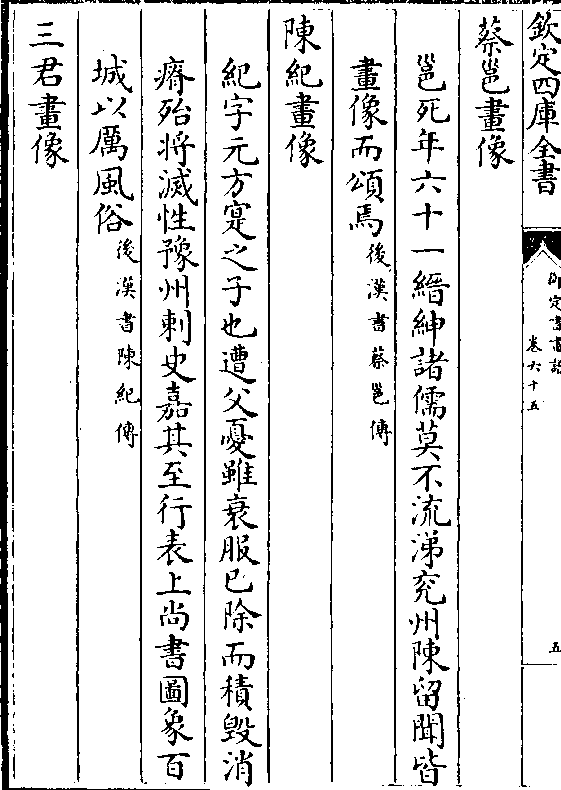 欽定四庫全書
御定書畫譜
卷六十五
五
蔡邕畫像
邕死年六十一縉紳諸儒莫不流涕兖州陳留聞皆
畫像而頌焉後漢書蔡邕傳
陳紀畫像
紀字元方寔之子也遭父憂雖衰服已除而積毀消
瘠殆將滅性豫州刺史嘉其至行表上尚書圖象百
城以厲風俗後漢書陳紀傳
三君畫像